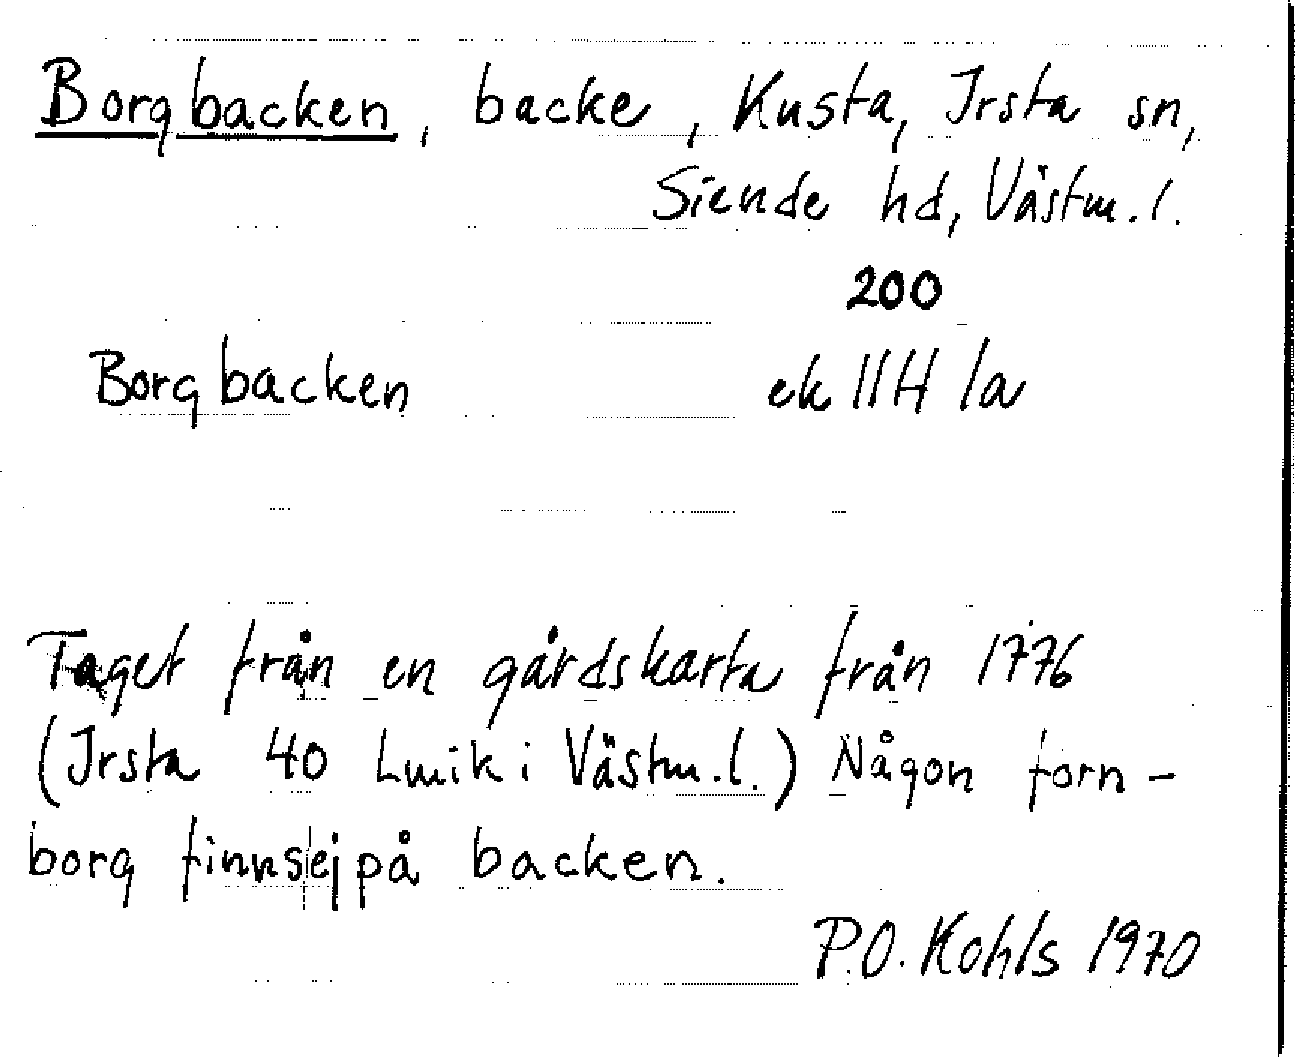 Borgbacken, backe, Kusta, Irsta sn,
Siende hd, Västm. l.
200
Borgbacken ek 11H 1a
Taget från en gårdskarta från 1776
(Irsta 40 Lmik i Västm. l.) Någon forn-
borg finns ej på backen.
P.O. Kohls 1970